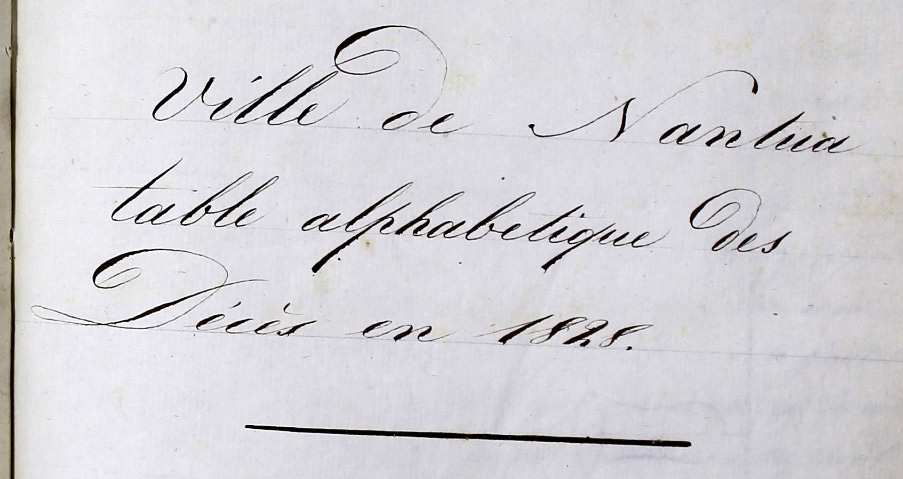 Ville de Nantua
table alphabetique des
Décès en 1828.